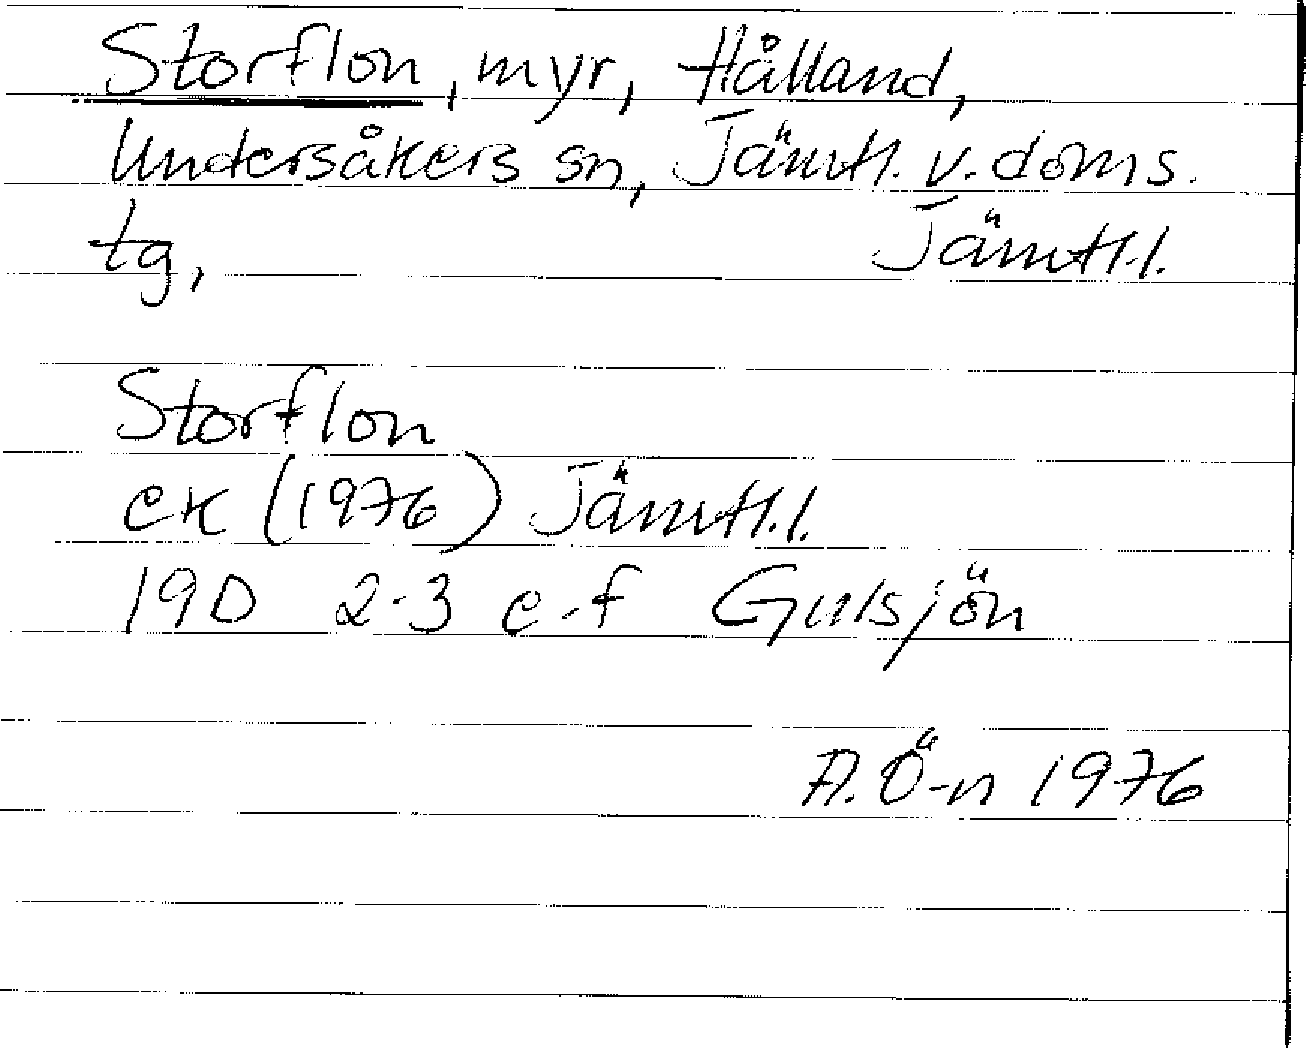 Storflon, myr, Hålland,
Undersåkers sn, Jämtl. v. doms.
tg, Jämtl.l.
Storflon
ek (1976) Jämtl.l.
19D 2-3 e-f Gulsjön
A. Ö-n 1976